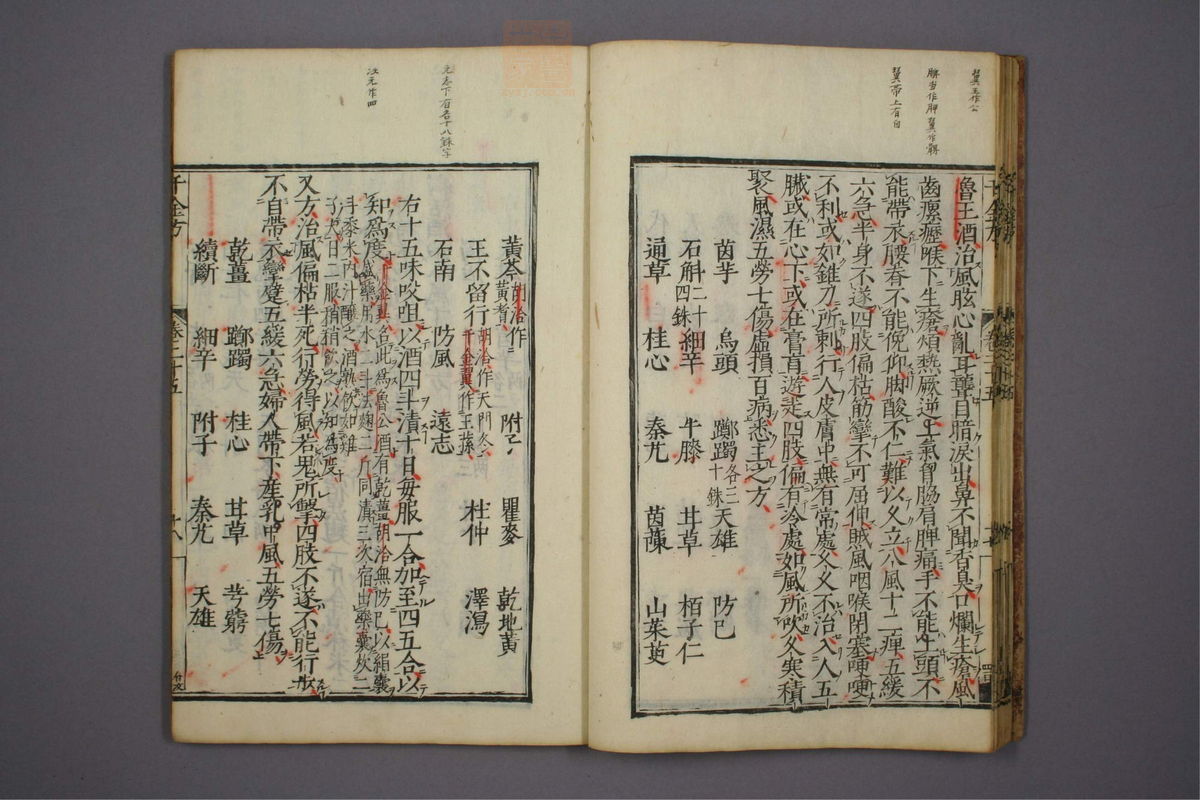 翼王作公
翼帶上有自
魯王酒治風眩心亂耳聾目暗淚出鼻不聞香臭口爛生瘡風
齒瘰癧喉下生瘡煩熱厥逆上氣胷脇肩脾痛手不能上頭不
能帶衣腰脊不能俛仰脚酸不仁難以久立八風十二痺五緩
六急半身不遂四肢偏枯筋攣不可屈伸賊風咽喉閉塞哽哽
不利或如錐刀所刺行人皮膚中無有常處久久不治入人五
臟或在心下或在膏肓遊走四肢偏有冷處如風所吹久寒積
聚風濕五勞七傷虛損百病悉主之方
茵芋 烏頭 躑躅各三十銖 天雄 防已
石斛二十四銖 細辛 牛膝 甘草 栢子仁
通草 桂心 秦艽 茵蔯 山茱萸
黃芩胡洽作黃耆 附子 瞿麥 乾地黃
王不留行胡洽作天門冬千金翼作王孫 杜仲 澤瀉
石南 防風 遠志
右十五味㕮咀以酒四斗漬十日每服一合加至四五合以
知爲度千金翼名此爲魯公酒有乾薑胡洽無防已以絹囊
又方治風偏枯半死行勞得風若鬼所擊四肢不遂不能行步
不自帶衣攣躄五緩六急婦人帶下產乳中風五勞七傷
乾薑 躑躅 桂心 甘草 芎藭
續斷 細辛 附子 秦艽 天雄
千金方 卷二十五